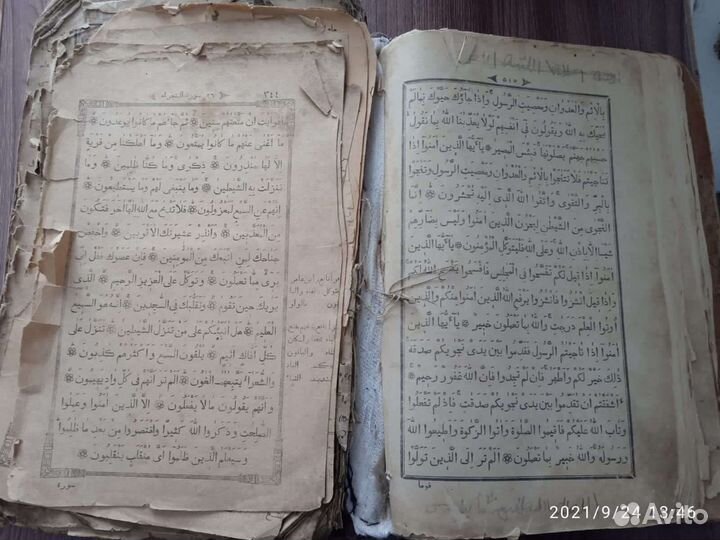 ٥١٥
بالاثم والعدوان ومعصيت الرسول واذا جاؤك حيوك بما لم
يحيك به الله ويقولون فى انفسهم لولا يعذبنا الله بما نقول
حسبهم جهنم يصلونها فبئس المصير يا ايها الذين امنوا اذا
تناجيتم فلا تتناجوا بالاثم والعدوان ومعصيت الرسول وتناجوا
بالبر والتقوى واتقوا الله الذى اليه تحشرون انما
النجوى من الشيطن ليحزن الذين امنوا وليس بضارهم
شيئا الا باذن الله وعلى الله فليتوكل المؤمنون يا ايها الذين
امنوا اذا قيل لكم تفسحوا فى المجلس فافسحوا يفسح الله لكم
واذا قيل انشزوا فانشزوا يرفع الله الذين امنوا منكم والذين
اوتوا العلم درجت والله بما تعملون خبير يا ايها الذين
امنوا اذا ناجيتم الرسول فقدموا بين يدى نجويكم صدقة
ذلك خير لكم واطهر فان لم تجدوا فان الله غفور رحيم
ءاشفقتم ان تقدموا بين يدى نجويكم صدقت فاذ لم تفعلوا
وتاب الله عليكم فاقيموا الصلوة واتوا الزكوة واطيعوا الله
ورسوله والله خبير بما تعملون الم تر الى الذين تولوا
قوما
٣٤٤
٢٦ سورة الشعراء
افرايت ان متعنهم سنين ثم جاءهم ما كانوا يوعدون
ما اغنى عنهم ما كانوا يمتعون وما اهلكنا من قرية
الا لها منذرون ذكرى وما كنا ظلمين وما
تنزلت به الشيطين وما ينبغى لهم وما يستطيعون
انهم عن السمع لمعزولون فلا تدع مع الله الها اخر فتكون
من المعذبين وانذر عشيرتك الاقربين واخفض
جناحك لمن اتبعك من المؤمنين فان عصوك فقل انى
برى مما تعملون وتوكل على العزيز الرحيم الذى
يريك حين تقوم وتقلبك فى السجدين انه هو السميع
العليم هل انبئكم على من تنزل الشيطين تنزل على
كل افاك اثيم يلقون السمع واكثرهم كذبون
والشعراء يتبعهم الغون الم تر انهم فى كل واد يهيمون
وانهم يقولون ما لا يفعلون الا الذين امنوا وعملوا
الصلحت وذكروا الله كثيرا وانتصروا من بعد ما ظلموا
وسيعلم الذين ظلموا اى منقلب ينقلبون
سورة
2021/9/24 13:46
Avito